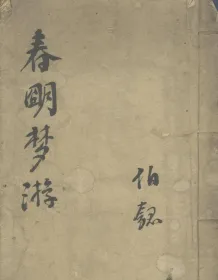 春明梦游
伯𫍯